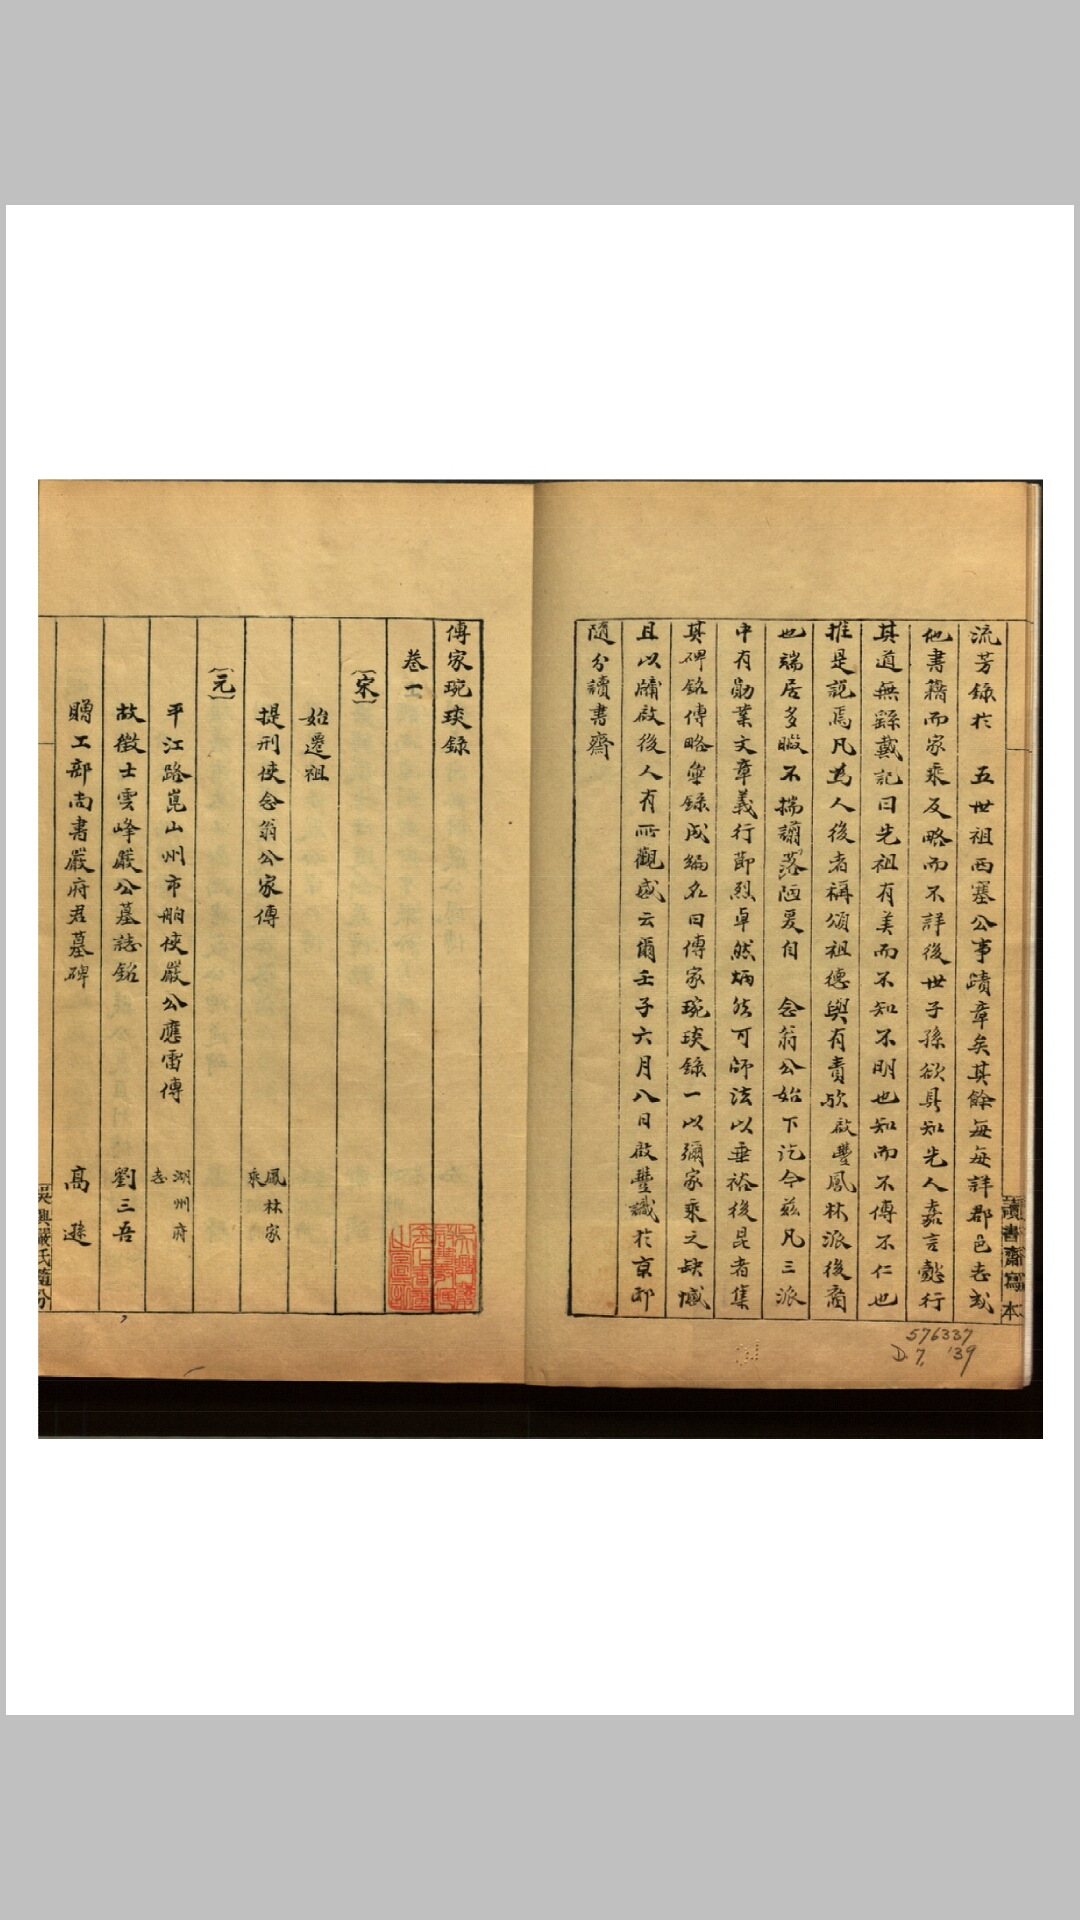 流芳錄於　五世祖西塞公事蹟章矣其餘每每詳郡邑志或
他書籍而家乘反略而不詳後世子孫欲具知先人嘉言懿行
其道無繇戴記曰先祖有美而不知不明也知而不傳不仁也
推是說焉凡為人後者稱頌祖德與有責歟啟豐鳳林派後裔
也端居多暇不揣谫落陋爰自　念翁公始下訖今茲凡三派
中有勛業文章義行節烈卓然炳然可師法以垂裕後昆者集
其碑銘傳略彙錄成編名曰傳家琬琰錄一以彌家乘之缺憾
且以牖啟後人有所觀感云爾壬子六月八日啟豐識於京邸
隨分讀書齋
讀書齋寫本
576337
D.7, '39
傳家琬琰錄
卷一
〔宋〕
始遷祖
提刑使念翁公家傳　鳳林家乘
〔元〕
平江路崑山州市舶使嚴公應雷傳　湖州府志
故徵士雲峰嚴公墓誌銘　劉三吾
贈工部尚書嚴府君墓碑　高遜
吳興嚴氏隨分